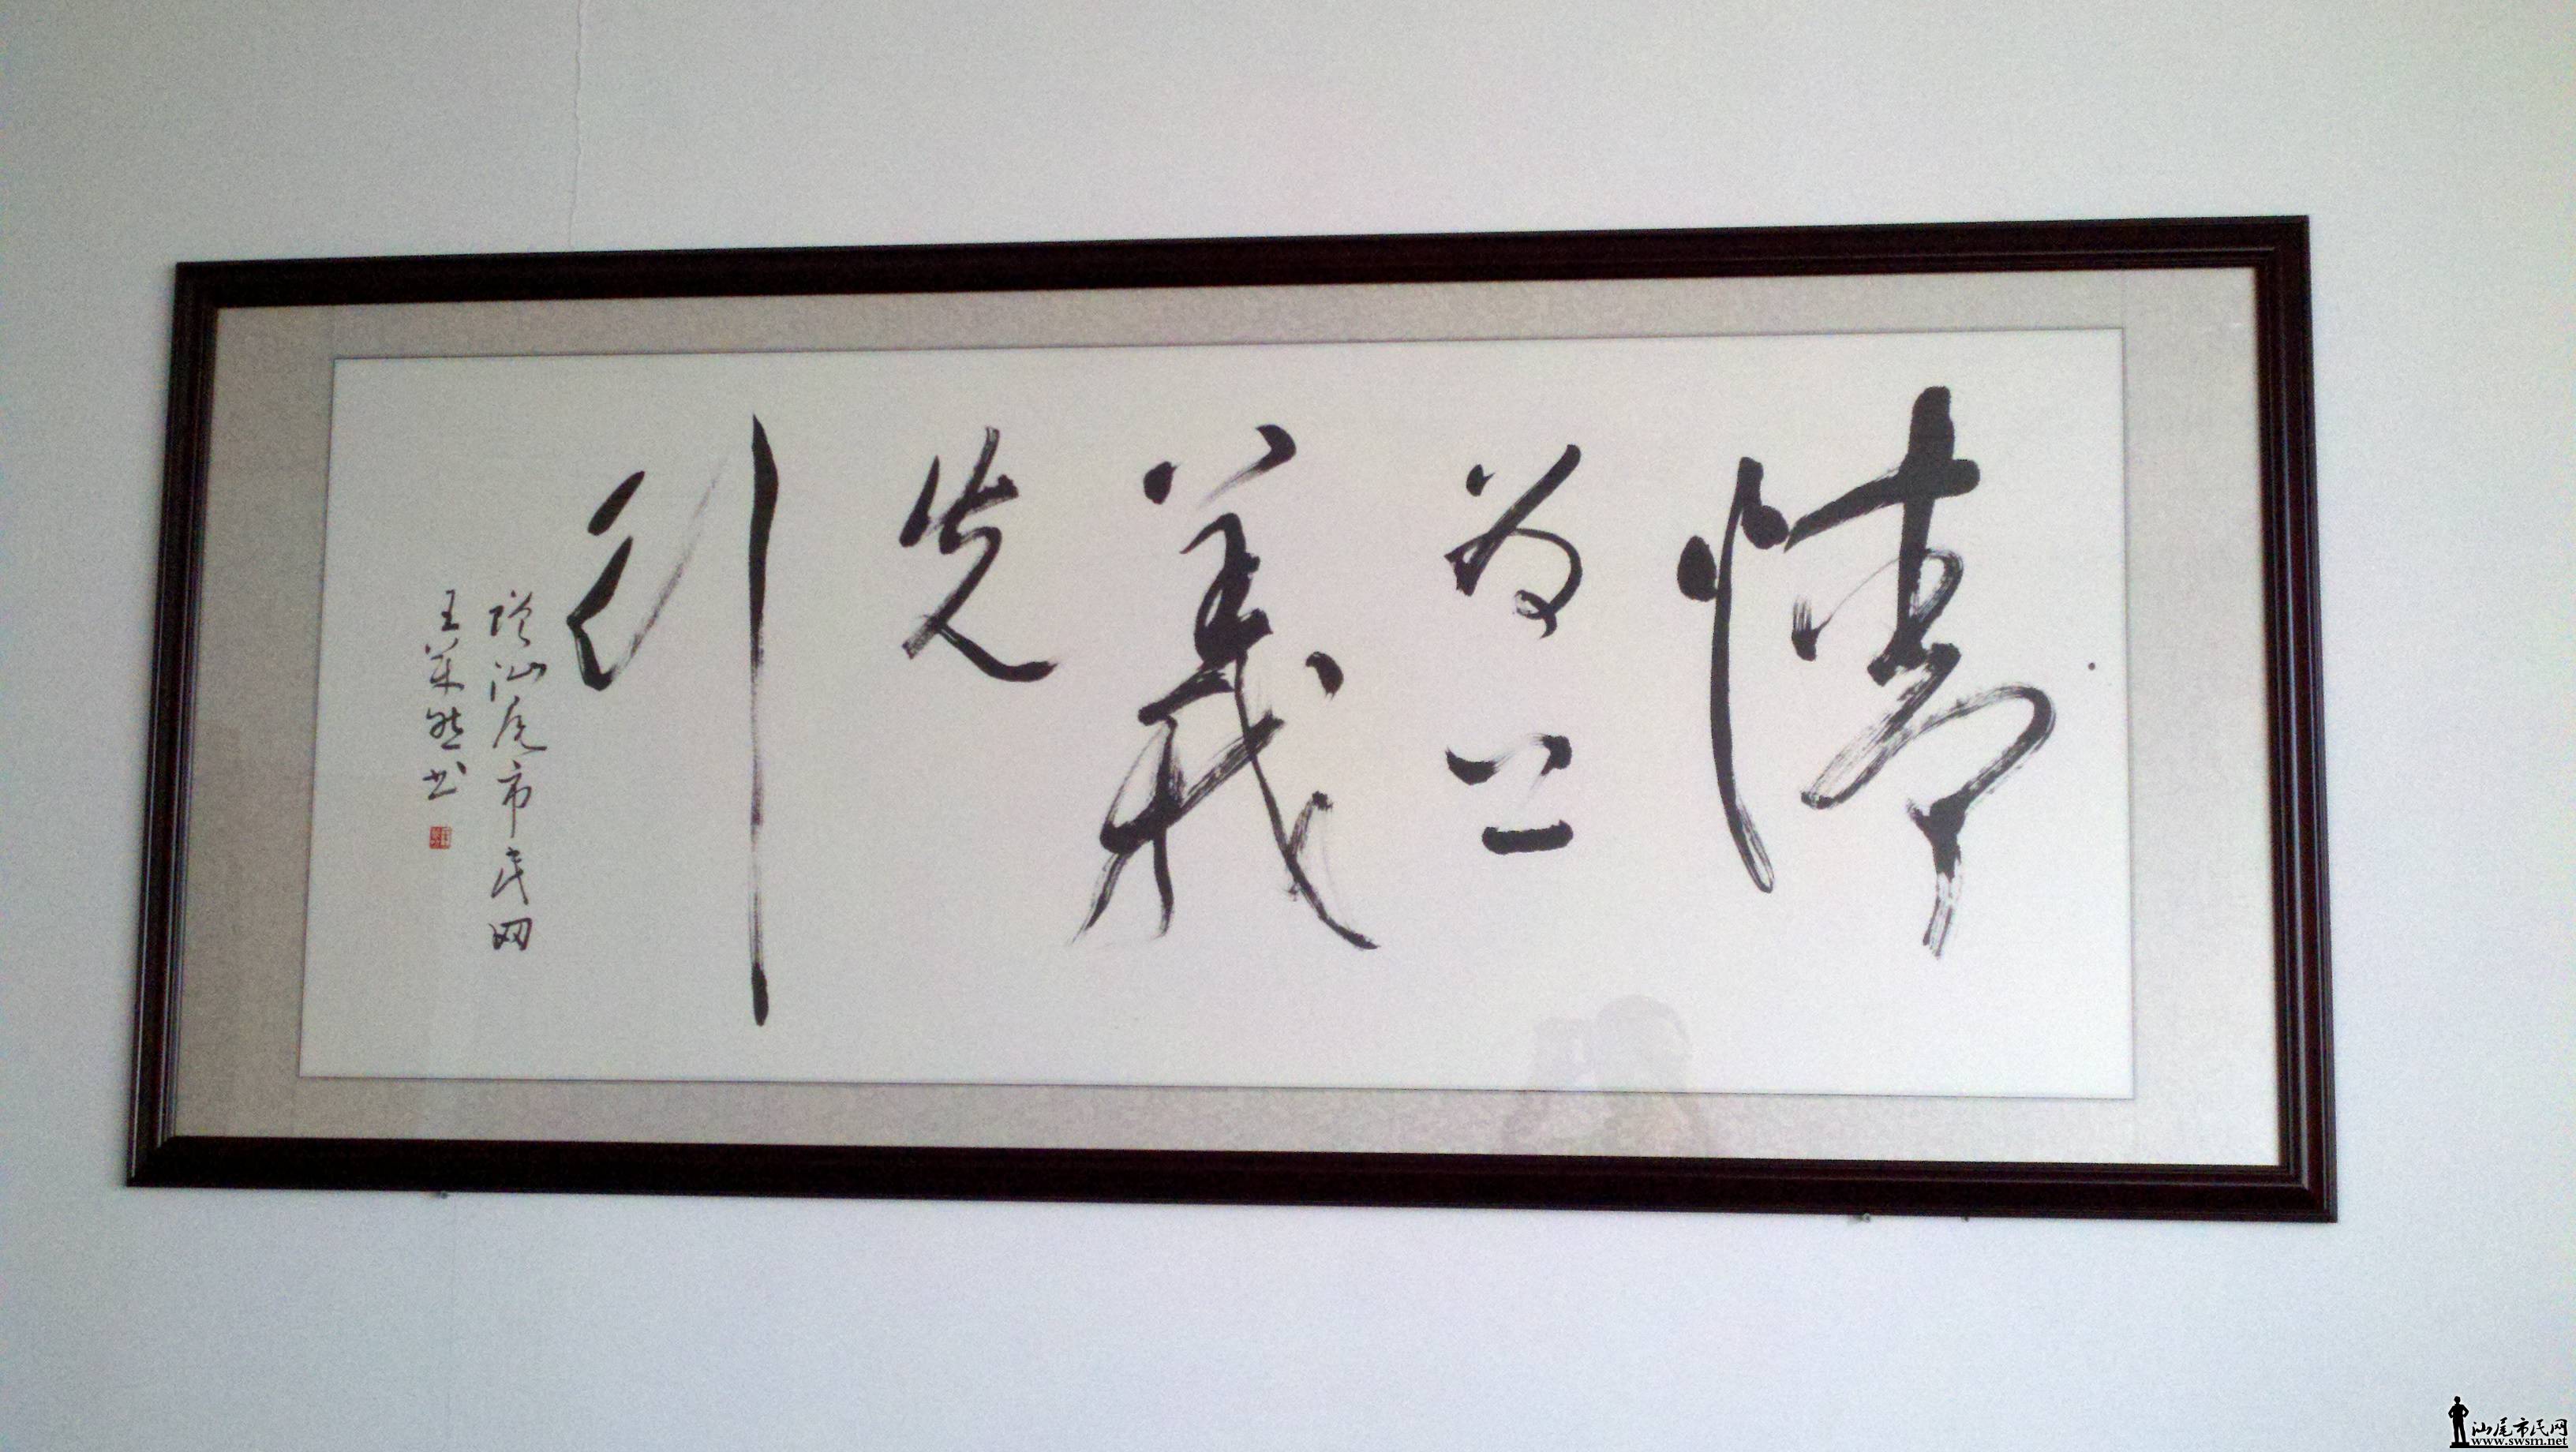 情为上義先引
赠汕尾市民网
王業然书
汕尾市民网
www.swsm.net